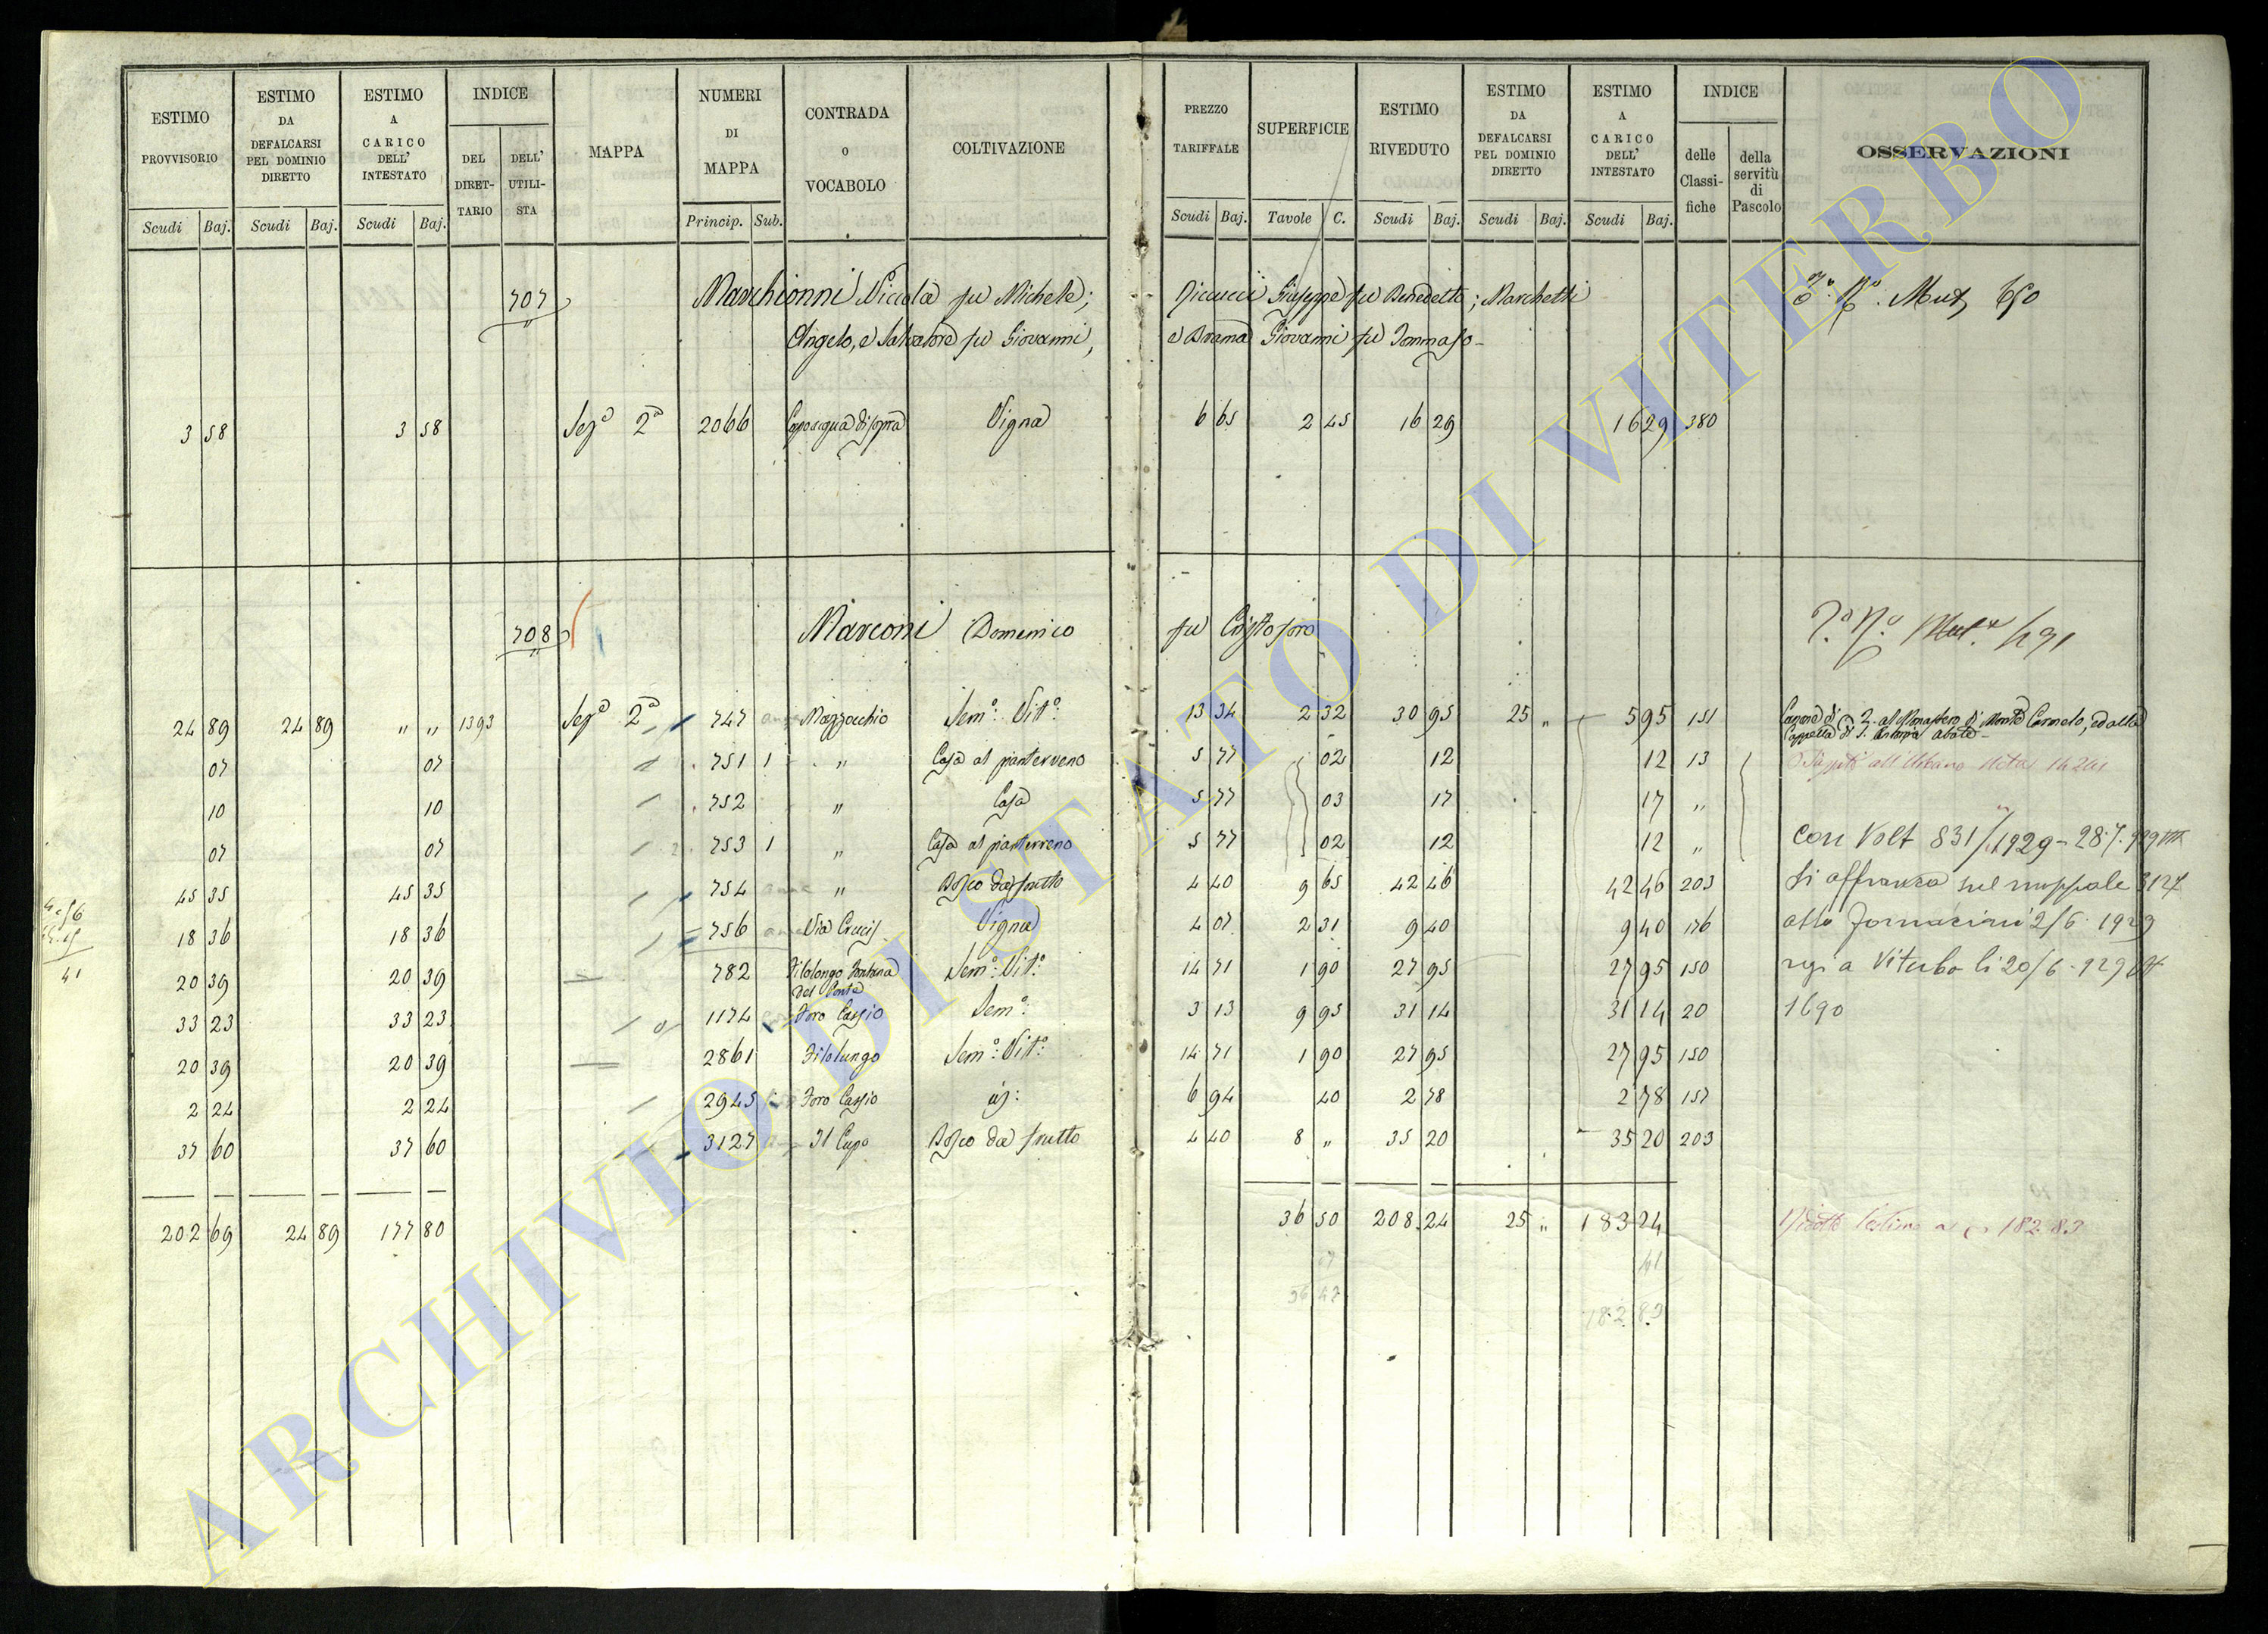 ESTIMO PROVVISORIO
ESTIMO DA DEFALCARSI PEL DOMINIO DIRETTO
ESTIMO A CARICO DELL' INTESTATO
INDICE
DEL DIRET-TARIO
DELL' UTILI-STA
MAPPA
NUMERI DI MAPPA
CONTRADA o VOCABOLO
COLTIVAZIONE
PREZZO TARIFFALE
SUPERFICIE
ESTIMO RIVEDUTO
ESTIMO DA DEFALCARSI PEL DOMINIO DIRETTO
ESTIMO A CARICO DELL' INTESTATO
INDICE
delle Classi-fiche
della servitù di Pascolo
OSSERVAZIONI
Scudi Baj. Scudi Baj. Scudi Baj. Princip. Sub. Scudi Baj. Tavole C. Scudi Baj. Scudi Baj. Scudi Baj.
707 Marchionni Niccola fu Michele; Riccucci Giuseppe fu Benedetto; Marchetti Mut 650
Angelo, e Salvatore fu Giovanni, e Brama Giovanni fu Tommaso
3 58 3 58 Sez.a 2a 2066 Capoacqua di sopra Vigna 6 65 2 45 16 29 16 29 380
708 Marconi Domenico fu Cristoforo
24 89 24 89 " " 1393 Sez.a 2a 747 Mazzocchio Sem.o Vit.o 13 34 2 32 30 95 25 " 5 95 151 Canone di 2. al Monastero di Monte Carmelo, ed alla
Cappella di S. Abate
07 07 751 1 " Casa al pianterreno 5 77 02 12 12 13
10 10 752 " Casa 5 77 03 17 17 "
07 07 753 1 " Casa al pianterreno 5 77 02 12 12 " con Volt 831/1929 - 28.7.929
45 35 45 35 754 " Bosco da frutto 4 40 9 65 42 46 42 46 203 si affranca sul mappale 3127
18 36 18 36 756 Via Crucis Vigna 4 07 2 31 9 40 9 40 176 atto 2/6 1929
20 39 20 39 782 Filolongo Fontana del Ponte Sem.o Vit.o 14 71 1 90 27 95 27 95 150 a Viterbo li 20/6.929
33 23 33 23 1174 Foro Cassio Sem.o 3 13 9 95 31 14 31 14 20 1690
20 39 20 39 2861 Filolungo Sem.o Vit.o 14 71 1 90 27 95 27 95 150
2 24 2 24 2945 Foro Cassio 6 94 40 2 78 2 78 157
37 60 37 60 3127 Il Cupo Bosco da frutto 4 40 8 " 35 20 35 20 203
202 69 24 89 177 80 36 50 208 24 25 " 183 24 Ridotto l'estimo a 182.83
41
182 83
41
ARCHIVIO DI STATO DI VITERBO